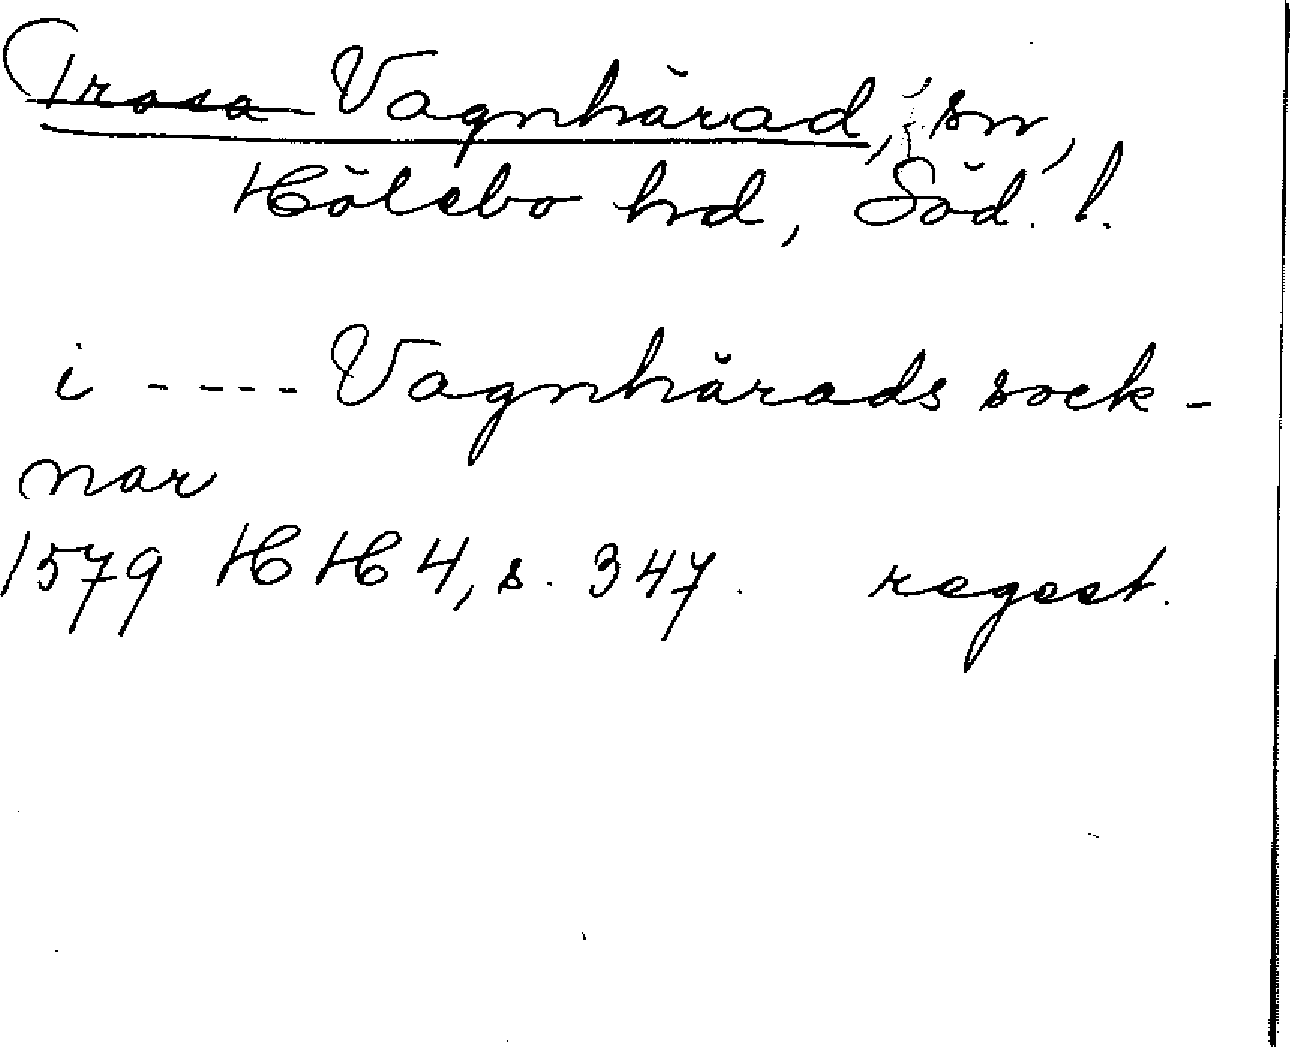 Trosa Vagnhärad, sn,
Hölebo hd, Söd. l.
i ---- Vagnhärads sock-
nar
1579 HH 4, s. 347. regest.